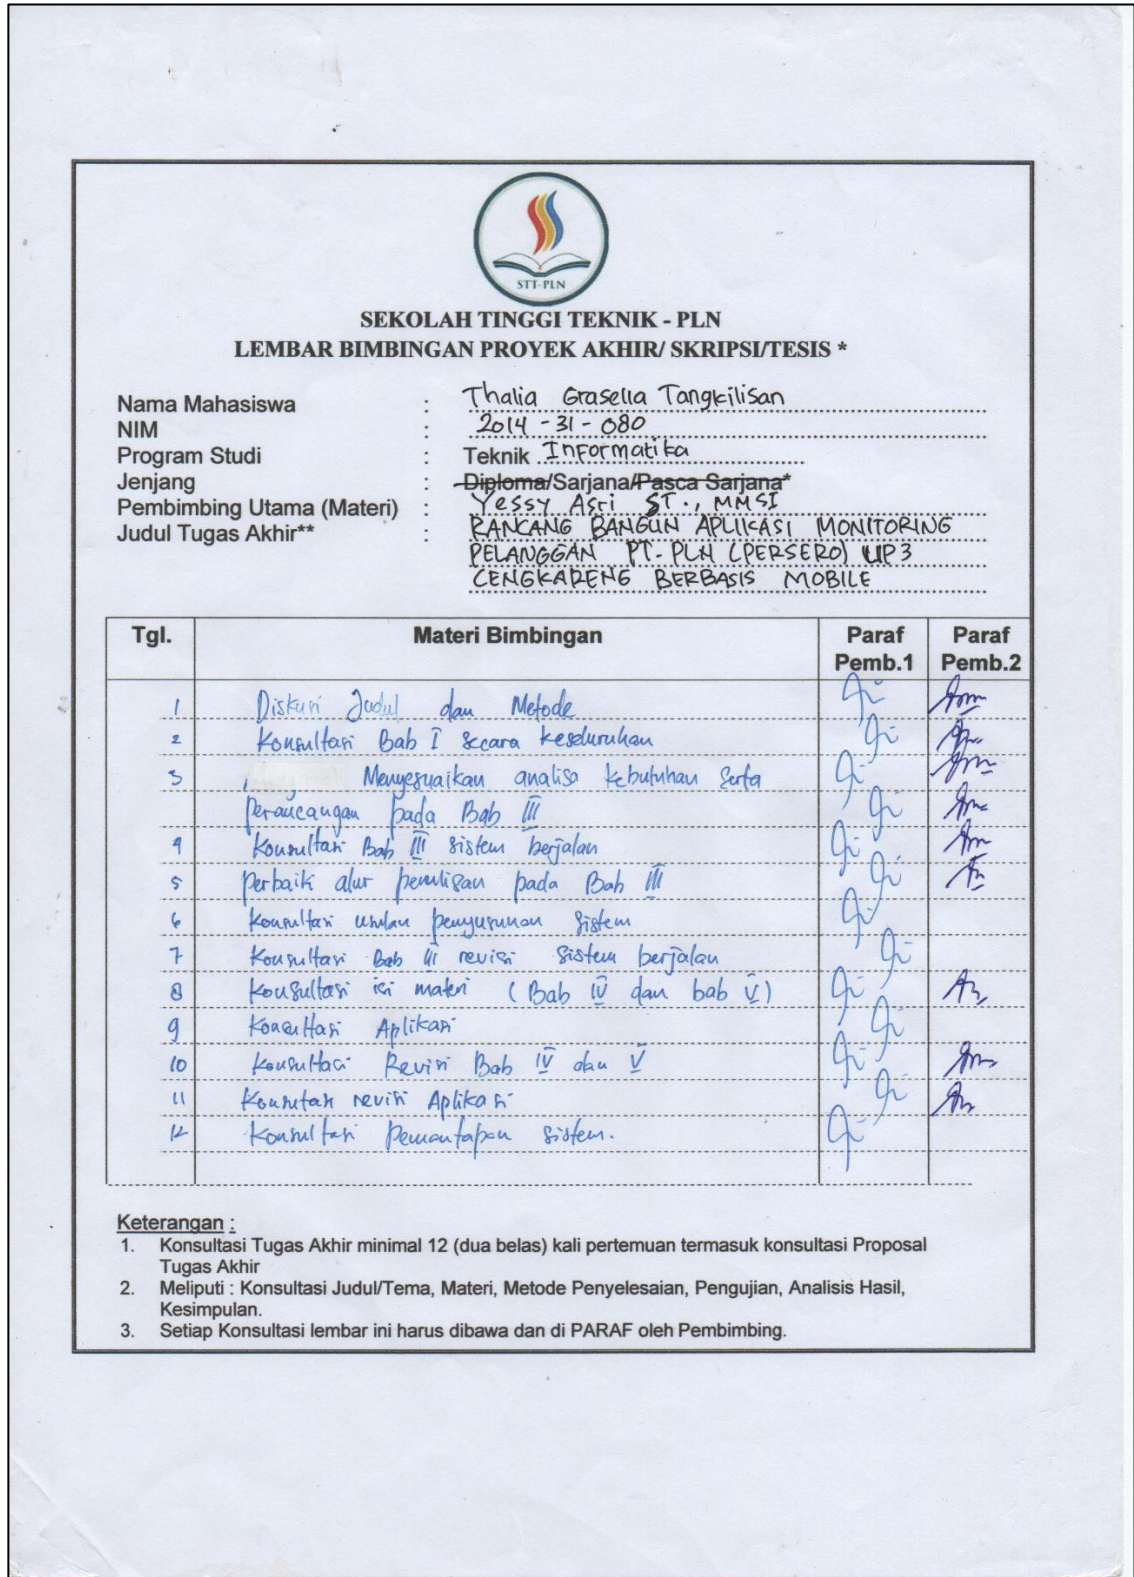 STT-PLN
SEKOLAH TINGGI TEKNIK - PLN
LEMBAR BIMBINGAN PROYEK AKHIR/ SKRIPSI/TESIS *
Nama Mahasiswa : Thalia Grasella Tangkilisan
NIM : 2014 - 31 - 080
Program Studi : Teknik Informatika
Jenjang : Diploma/Sarjana/Pasca Sarjana*
Pembimbing Utama (Materi) : Yessy Asri ST., MMSI
Judul Tugas Akhir** : RANCANG BANGUN APLIKASI MONITORING
PELANGGAN PT. PLN (PERSERO) UP3
CENGKARENG BERBASIS MOBILE
Tgl. Materi Bimbingan Paraf Pemb.1 Paraf Pemb.2
1 Diskusi Judul dan Metode
2 Konsultasi Bab I secara keseluruhan
3 Menyesuaikan analisa kebutuhan serta
perancangan pada Bab III
4 Konsultasi Bab III sistem berjalan
5 Perbaik alur penulisan pada Bab III
6 Konsultasi usulan penyusunan sistem
7 Konsultasi Bab III revisi sistem berjalan
8 Konsultasi isi materi (Bab IV dan bab V)
9 Konsultasi Aplikasi
10 Konsultasi Revisi Bab IV dan V
11 Konsutasi revisi Aplikasi
12 Konsultasi Pemantapan sistem.
Keterangan :
1. Konsultasi Tugas Akhir minimal 12 (dua belas) kali pertemuan termasuk konsultasi Proposal
Tugas Akhir
2. Meliputi : Konsultasi Judul/Tema, Materi, Metode Penyelesaian, Pengujian, Analisis Hasil,
Kesimpulan.
3. Setiap Konsultasi lembar ini harus dibawa dan di PARAF oleh Pembimbing.